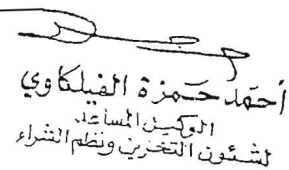 أحمد حمزة الفيلكاوي
الوكيل المساعد
لشئون التخزين ونظم الشراء